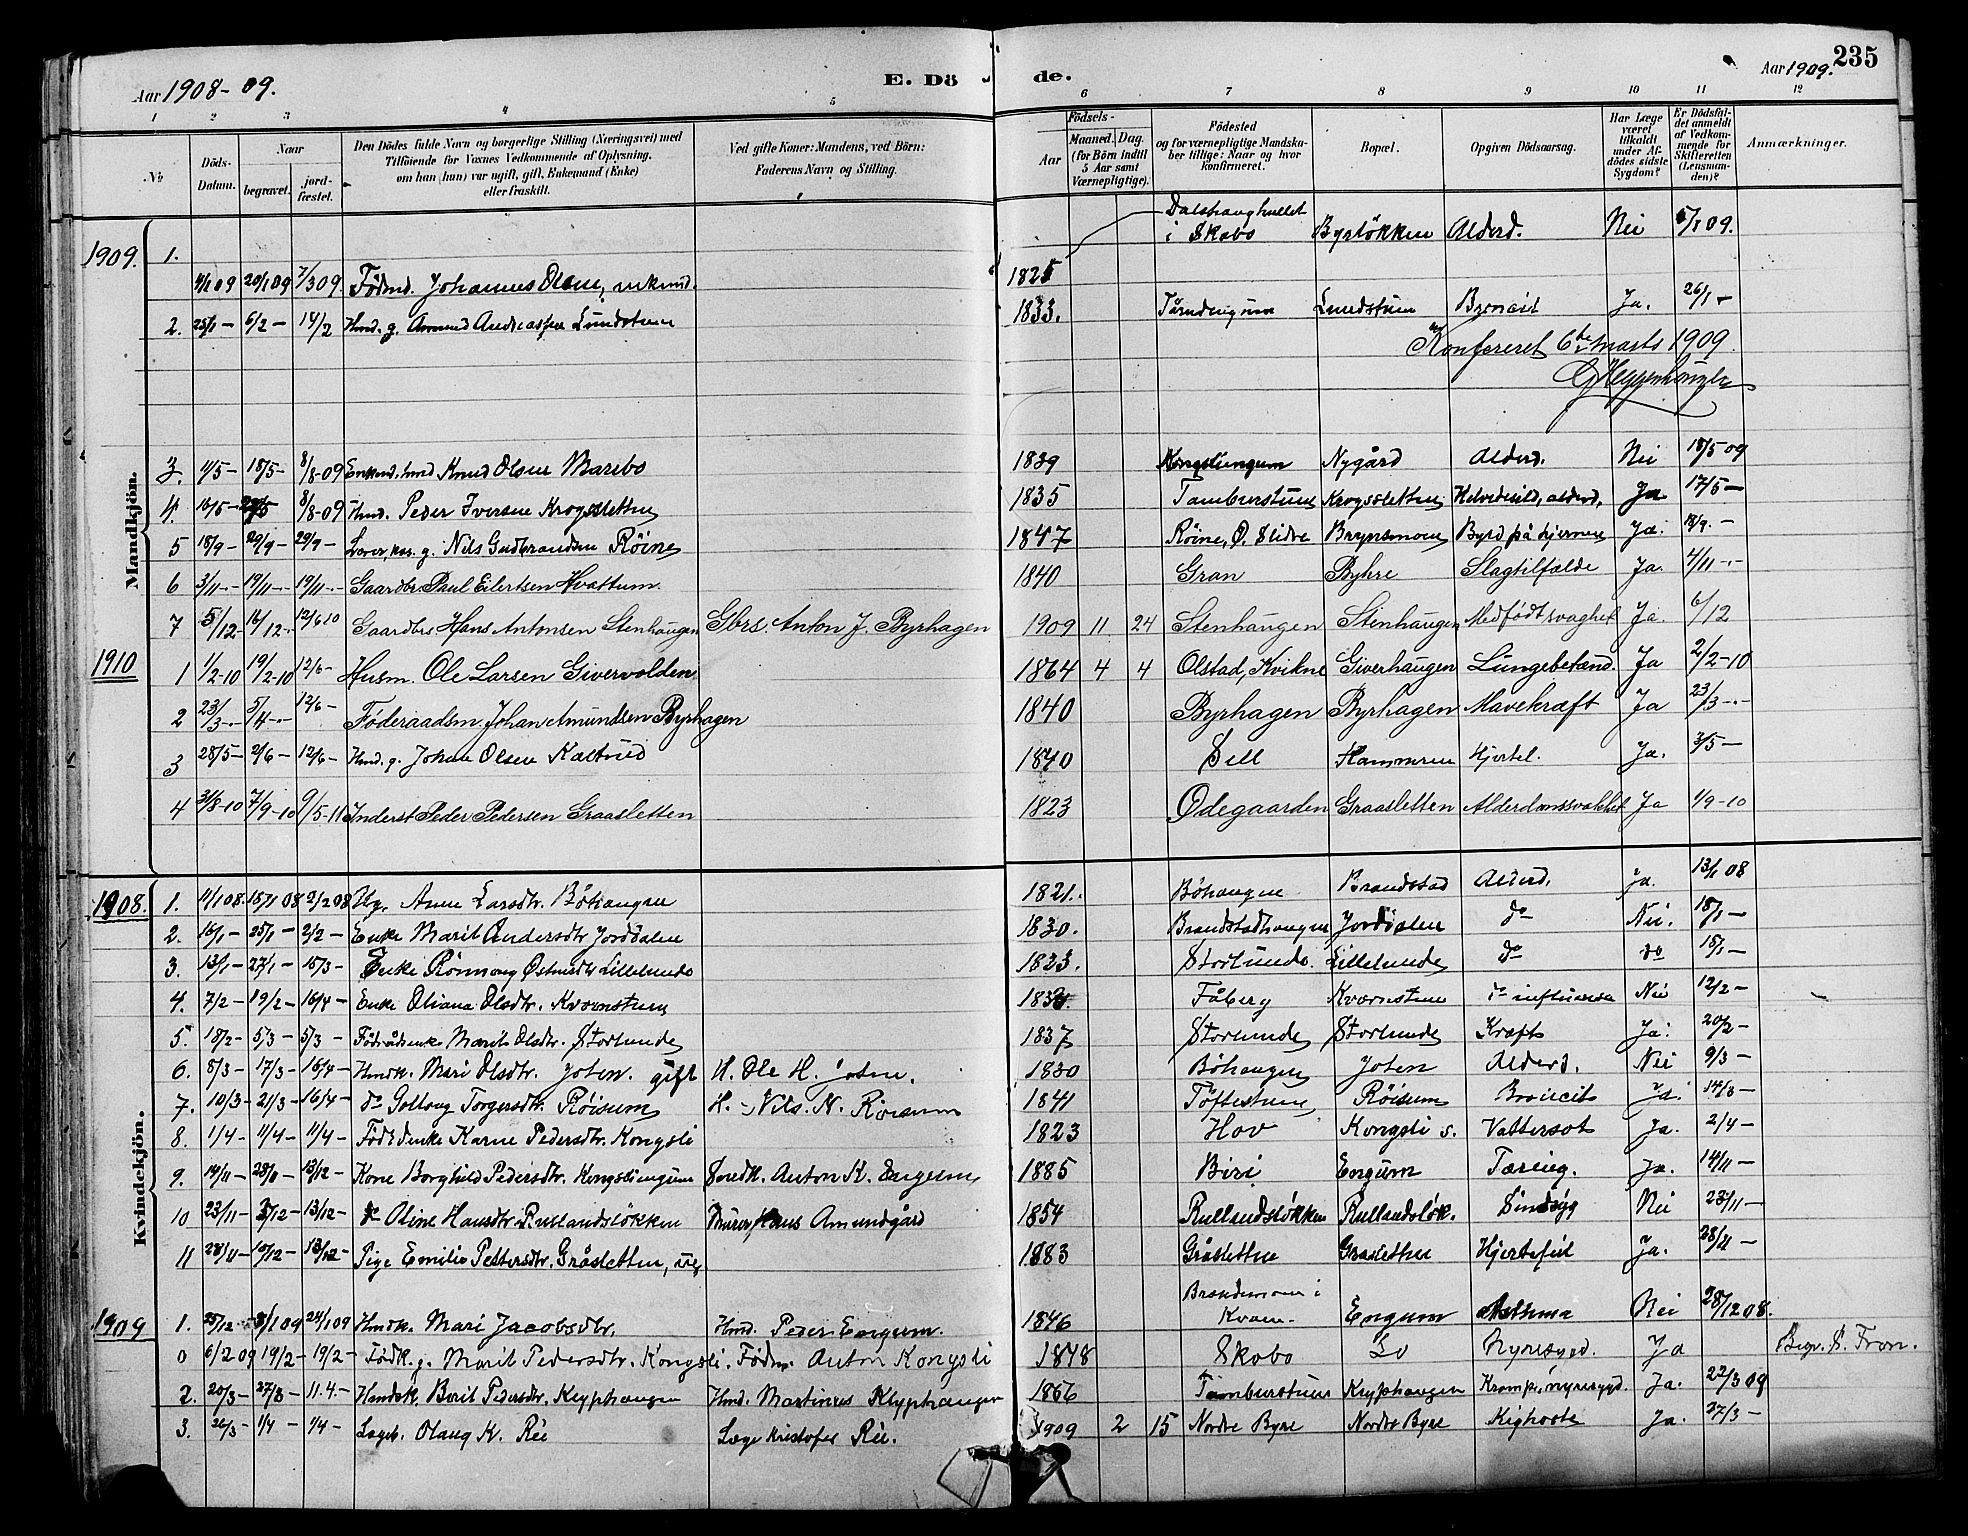 Aar 1908-09. E. Dö de. Aar 1909. 235
1 2 3 4 5 6 7 8 9 10 11 12
No
Döds-Datum.
Naar
begravet.
jord-fæstet.
Den Dödes fulde Navn og borgerlige Stilling (Næringsvei) med
Tilföiende for Voxnes Vedkommende af Oplysning,
om han (hun) var ugift, gift, Enkemand (Enke)
eller fraskilt.
Ved gifte Koner: Mandens, ved Börn:
Faderens Navn og Stilling.
Födsels-
Aar
Maaned. Dag.
(for Börn indtil
5 Aar samt
Værnepligtige).
Födested
og for værnepligtige Mandska-
ber tillige: Naar og hvor
konfirmeret.
Bopæl.
Opgiven Dödsaarsag.
Har Læge
været
tilkaldt
under Af-
dödes sidste
Sygdom?
Er Dödsfal-
det anmeldt
af Vedkom-
mende for
Skifteretten
(Lensman-
den)?
Anmærkninger.
Mandkjön.
1909. 1. 20/1 09 7/3 09 Fødmd. Johannes Olsen, enkmd. 1825 i Skabo Byrløkken Alderd. Nei 5/1 09.
2. 25/1- 6/2- 14/2 Hmd. g. Amund Andreassen Lundstuen 1833. Lundstuen Ja. 26/1-
Konfereret 6te marts 1909
3. 4/5- 18/5- 8/8-09 Enkmd. hmd Knud Olsen Maribo 1839 Kongsliengum Nygård Alderd. Nei 18/5 09
4. 16/5- 8/8-09 Hmd. Peder Iversen Krogsletten 1835 Tamburstuen Krogssletten alderd. Ja 17/5-
5 18/9- 29/9- 29/9- g. Nils Gudbrandsen Røine 1847 Røine, Ø. Slidre Brynsmoen Byld på hjernen Ja. 18/9.-
6 3/11- 19/11- 19/11- Gaardbr. Paul Eilertsen Hvattum. 1840 Gran Byhre Slagtilfælde Ja. 4/11-
7 5/12- 16/12- 12/6 10 Gaardbrs Hans Antonsen Stenhaugen Gbrs. Anton J. Byrhagen 1909 11 24 Stenhaugen Stenhaugen Medfødt svaghet Ja. 6/12
1910 1 1/2-10 19/2-10 12/6- Husm. Ole Larsen Givervolden 1864 4 4 Olstad, Kvikne Giverhaugen Lungebetænd. Ja 2/2-10
2 23/3- 5/4- 12/6- Føderaadsm. Johan Amundsen Byrhagen 1840 Byrhagen Byrhagen Mavekræft Ja 23/3-
3 28/5- 2/6- 12/6- Hmd. g. Johan Olsen Kaltrud 1840 Sell Hammeren Hjertel. Ja. 3/5-
4 31/8-10 7/9-10 9/5-11 Inderst Peder Pedersen Graasletten 1823 Ødegaarden Graasletten Alderdomssvakhet Ja 1/9-10
Kvindekjön.
1908. 1. 11/1 08. 18/1 08 2/2 08 Ug. Anne Larsdtr. Bøhaugen 1821. Bøhaugen Brandstad Alderd. ja. 13/1 08
2. 16/1- 25/1- 2/2- Enke Marit Andersdtr Jorddalen 1830. Brandstadhaugen Jorddalen do Nei. 18/1-
3. 13/1- 27/1- 15/3- Enke Rønnaug Østensdtr Lillelunde 1823. Storlunde. Lillelunde do do 15/1-
4. 7/2- 19/2- 16/4- Enke Oliana Olsdtr. Kvernstuen Fåberg Kvernstuen do influensa Nei 12/2-
5. 18/2- 5/3- 5/3- Fødrådsenke Marit Olsdtr. Storlunde 1837 Storlunde Storlunde Kræft Ja. 20/2-
6. 8/3- 17/3- 16/4- Hmdk. Mari Olsdtr. Joten. gift H. Ole H. Joten. 1830 Bøhaugen Joten Alderd. Nei 9/3-
7. 10/3- 21/3- 16/4- do Goltaug Torgersdtr. Røisum H.- Nils. N. Røisum 1841 Tøftestuen Røisum Ja 14/3-
8. 1/4- 11/4- 11/4- Fødrdenke Karen Pedersdtr. Kongsli 1823 Hov Kongsli s. Vattersot Ja. 2/4-
9. 14/11- 13/12- Kone Borghild Pedersdtr. Kongsliengum Smedk. Anton K. Engum 1885 Biri Engum Tæring. Ja. 14/11-
10 23/11- 3/12- 13/12- do Oline Hansdtr. Rullandsløkken Murer, Hans Amundgård 1854 Rullandsløkken Rullandsløk. Sindsyg Nei 23/11-
11 28/11- 10/12- 13/12- Pige Emilie Pettersdtr. Gråsletten, ug 1883 Gråsletten Grasletten Hjertefeil Ja. 28/11-
1909 1. 25/12- 8/1 09 24/1 09 Hmdk. Mari Jacobsdtr. Hmd. Peder Engum. 1846 Brendemoen i Kvam. Engum Asthma Nei 28/12 08.
0 6/2 09 19/2- 19/2- Fødk. g. Marit Pedersdtr. Kongsli. Fødm. Anton Kongsli 1848 Skabo Lo Nyresygd. Ja Begr. S. Fron.
2. 20/3- 27/3- 11.4.- Hmdsk. Berit Pedersdtr. Klyphaugen Hmd. Martinus Klyphaugen 1866 Tamburstuen Klyphaugen Krampe, nyresygd. Ja. 22/3 09
3. 26/3- 1/4- 1/4- Lægeb. Olaug K. Rii Læge Kristofer Rii. 1909 2 15 Nordre Byre Nordre Byre Kighoste Ja. 27/3-